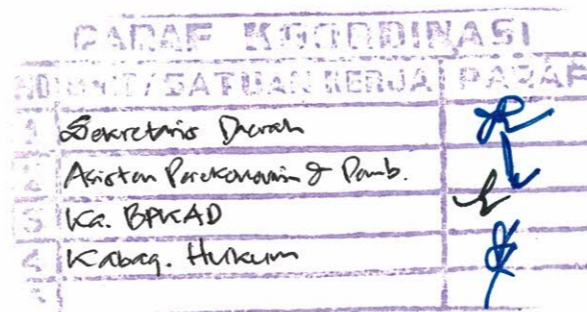 PARAF KOORDINASI
NO UNIT/SATUAN KERJA PARAF
1 Sekretaris Daerah
2 Asisten Perekonomian & Pemb.
3 Ka. BPKAD
4 Kabag. Hukum
5